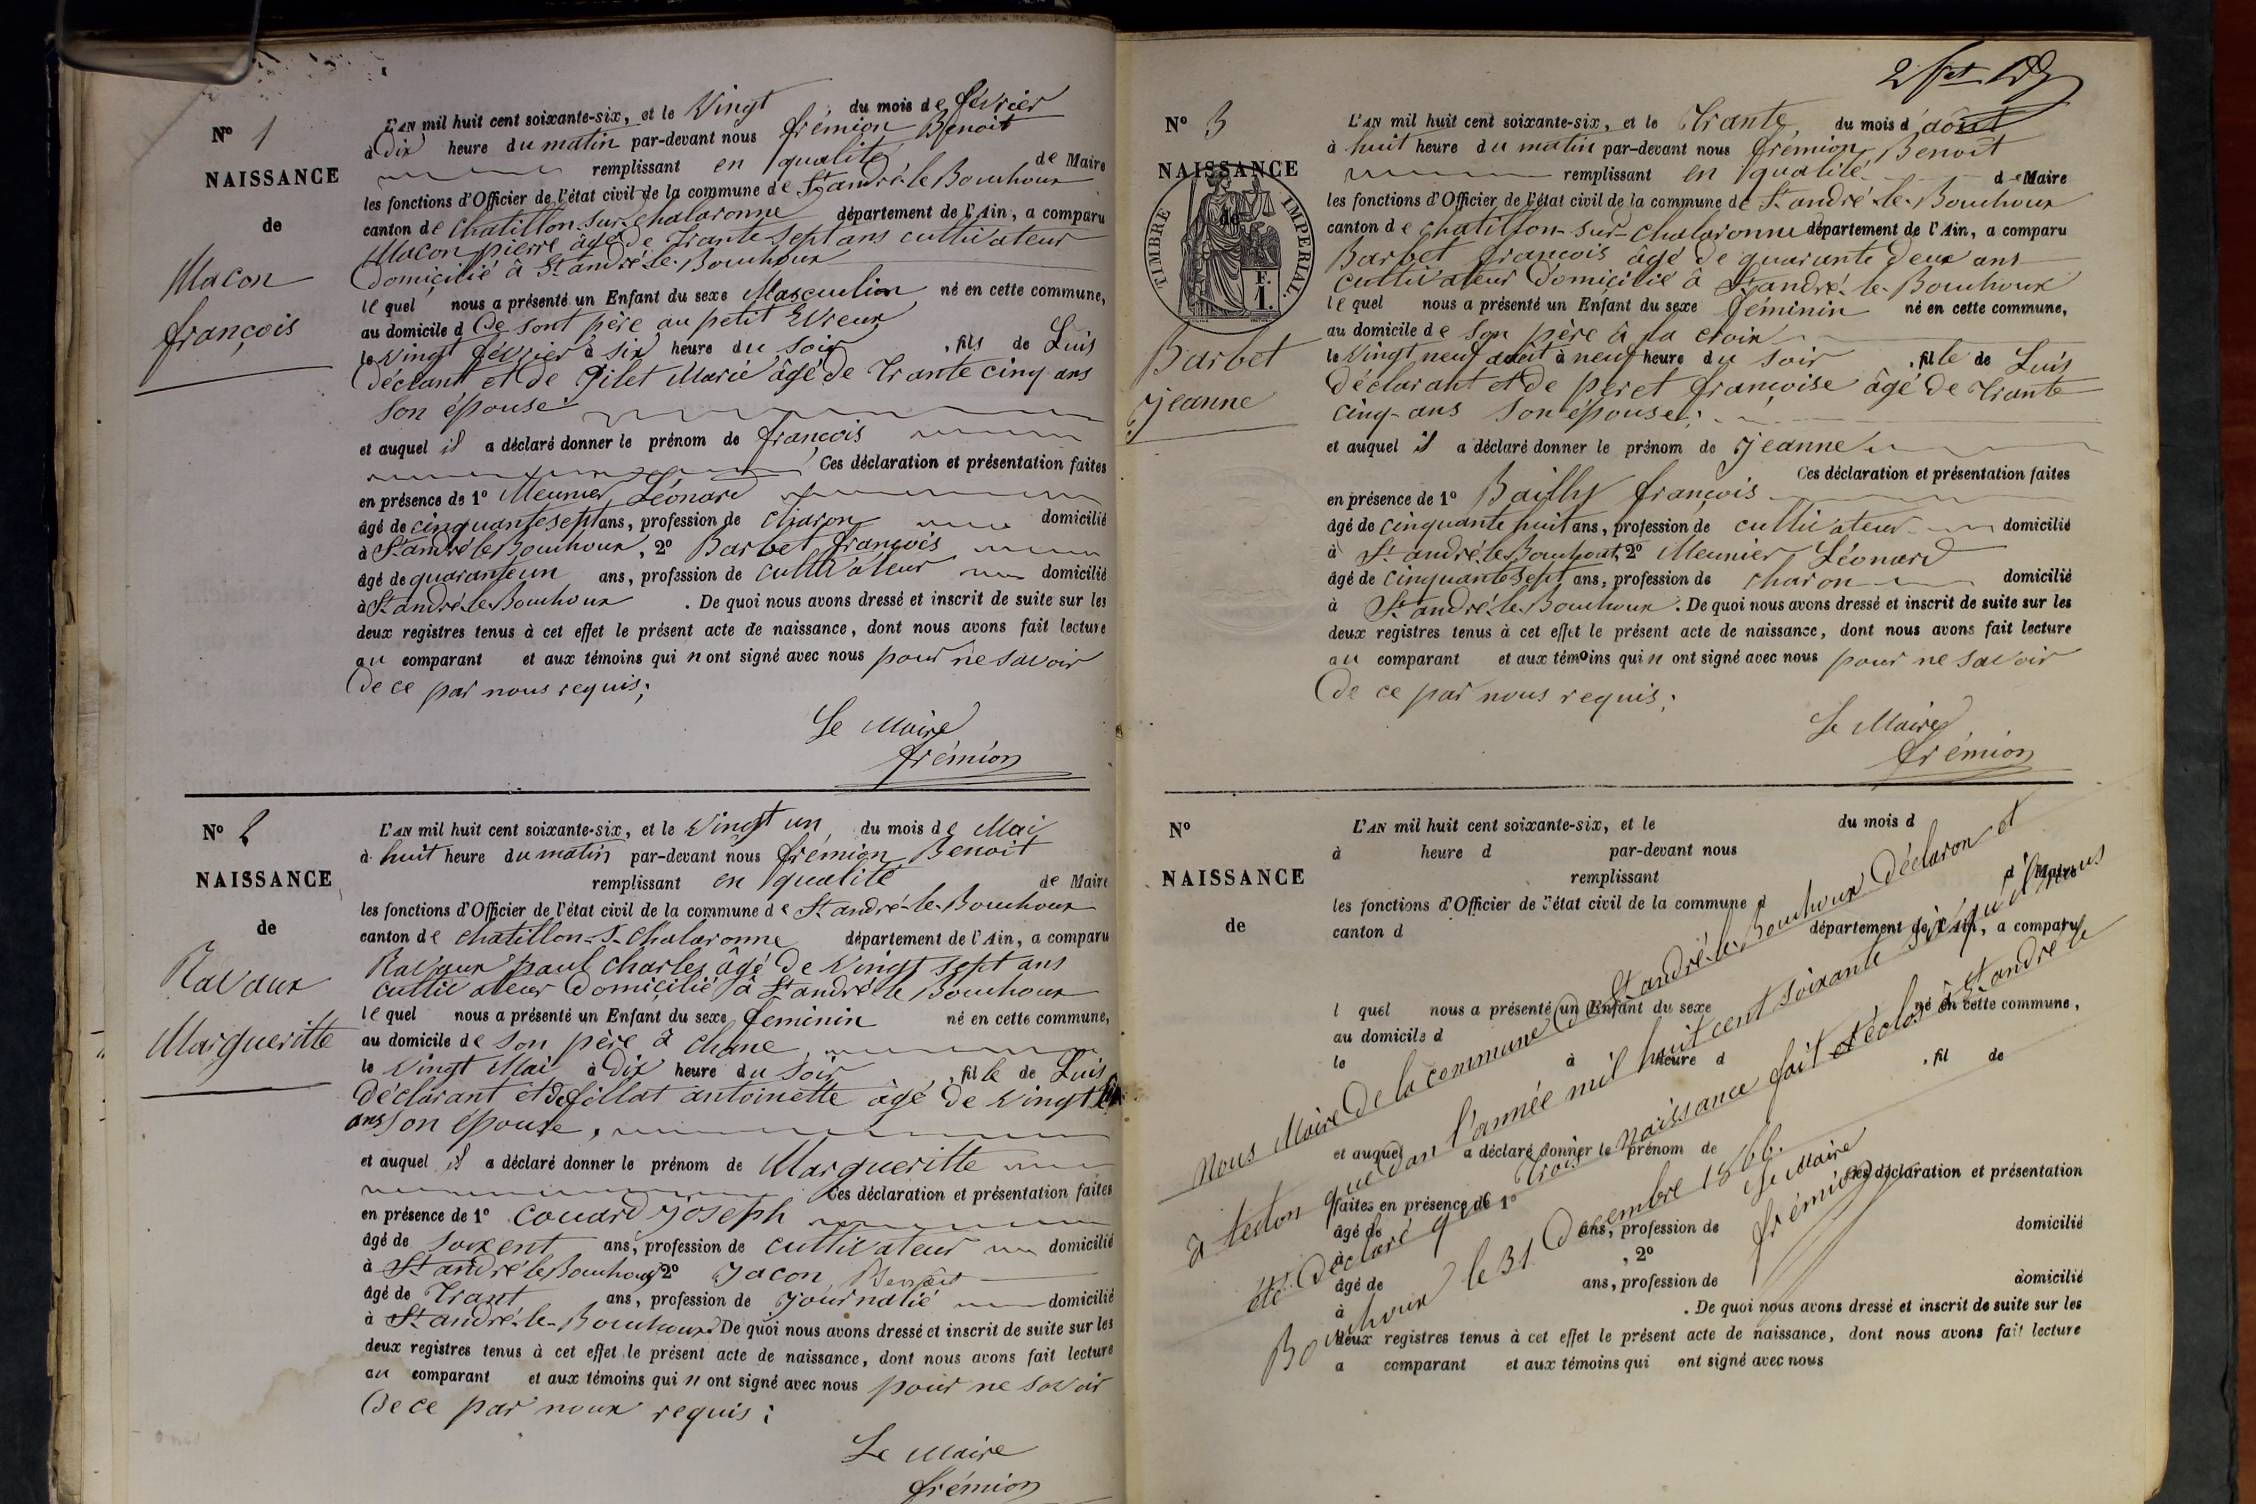 N° 1
NAISSANCE
de
Macon
françois
L'AN mil huit cent soixante-six, et le Vingt du mois de février
à Dix heure du matin par-devant nous frémion Benoit
remplissant en qualité de Maire
les fonctions d'Officier de l'état civil de la commune de St andré-le-Bouchoux
canton de chatillon-sur-chalaronne département de l'Ain, a comparu
Macon pierre âgé de trante-sept ans cultivateur
Domicilié à St andré-le-Bouchoux
lequel nous a présenté un Enfant du sexe Masculion né en cette commune,
au domicile d de sont père au petit Evieux
le vingt février à six heure du soir, fils de Luis
déclant et de Pilet Marie âgé de trante cinq ans
son épouse
et auquel il a déclaré donner le prénom de françois
Ces déclaration et présentation faites
en présence de 1° Meunier Léonard
âgé de cinquante sept ans, profession de charon domicilié
à St andré le Bouchoux, 2° Barbet françois
âgé de quarante un ans, profession de cultivateur domicilié
à St andré-le-Bouchoux. De quoi nous avons dressé et inscrit de suite sur les
deux registres tenus à cet effet le présent acte de naissance, dont nous avons fait lecture
au comparant et aux témoins qui n ont signé avec nous pour ne savoir
de ce par nous requis;
Le Maire
frémion
N° 2
NAISSANCE
de
Ravaux
Margueritte
L'AN mil huit cent soixante-six, et le Vingt un du mois de Mai
à huit heure du matin par-devant nous frémion Benoit
remplissant en qualité de Maire
les fonctions d'Officier de l'état civil de la commune de St andré-le-Bouchoux
canton de chatillon-s-chalaronne département de l'Ain, a comparu
Ravaux paul charles âgé de vingt sept ans
cultivateur Domicilié à St andré-le Bouchoux
lequel nous a présenté un Enfant du sexe feminin né en cette commune,
au domicile de son père à chane
le vingt Mai à Dix heure du soir, fille de Luis
déclarant et de fillat antoinette âgé de vingt
ans son épouse,
et auquel il a déclaré donner le prénom de Margueritte
Ces déclaration et présentation faites
en présence de 1° couard joseph
âgé de soixent ans, profession de cultivateur domicilié
à St andré le Bouchoux 2° jacon Benoit
âgé de trant ans, profession de journalié domicilié
à St andré-le-Bouchoux. De quoi nous avons dressé et inscrit de suite sur les
deux registres tenus à cet effet le présent acte de naissance, dont nous avons fait lecture
au comparant et aux témoins qui n ont signé avec nous pour ne savoir
de ce par noux requis;
Le Maire
frémion
N° 3
NAISSANCE
de
TIMBRE IMPERIAL.
F.
1.
Barbet
jeanne
L'AN mil huit cent soixante-six, et le trante du mois d'août
à huit heure du matin par-devant nous frémion Benoit
remplissant en qualité de Maire
les fonctions d'Officier de l'état civil de la commune de St andré-le-Bouchoux
canton de chatillon-sur-chalaronne département de l'Ain, a comparu
Barbet françois âgé de quarante deux ans
cultivateur domicilié à St andré-le-Bouchoux
lequel nous a présenté un Enfant du sexe féminin né en cette commune,
au domicile de son père à la croix
le vingt neuf août à neuf heure du soir, fille de Luis
déclarant et de peret françoise âgé de trante
cinq-ans son épouse;
et auquel il a déclaré donner le prénom de jeanne
Ces déclaration et présentation faites
en présence de 1° Bailly françois
âgé de cinquante huit ans, profession de cultivateur domicilié
à St andré-le-Bouchoux, 2° Meunier Léonard
âgé de cinquante sept ans, profession de charon domicilié
à St andré-le-Bouchoux. De quoi nous avons dressé et inscrit de suite sur les
deux registres tenus à cet effet le présent acte de naissance, dont nous avons fait lecture
au comparant et aux témoins qui n ont signé avec nous pour ne savoir
de ce par nous requis;
Le Maire
frémion
N°
NAISSANCE
de
L'AN mil huit cent soixante-six, et le du mois d
à heure d par-devant nous
remplissant d Maire
les fonctions d'Officier de l'état civil de la commune d
canton d département de l'Ain, a comparu
l quel nous a présenté un Enfant du sexe né en cette commune,
au domicile d
le à heure d , fil de
et auquel a déclaré donner le prénom de
Ces déclaration et présentation
faites en présence de 1°
âgé de ans, profession de domicilié
à , 2°
âgé de ans, profession de domicilié
à . De quoi nous avons dressé et inscrit de suite sur les
deux registres tenus à cet effet le présent acte de naissance, dont nous avons fait lecture
a comparant et aux témoins qui ont signé avec nous
nous Maire de la commune de St andré-le-Bouchoux déclaron et
à teston que dan l'année mil huit cent soixante six qu'il nous
été déclaré que trois naissance fait et éclos à St andré le
Bouchoux le 31 Décembre 1866.
Le Maire
frémion